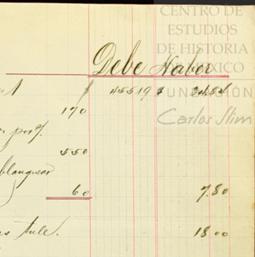 CENTRO DE
ESTUDIOS
DE HISTORIA
DE MÉXICO
FUNDACIÓN
Carlos Slim
Debe Haber
$ 455 19 $
170
550
blanquear
60 7.80
tule. 18 00